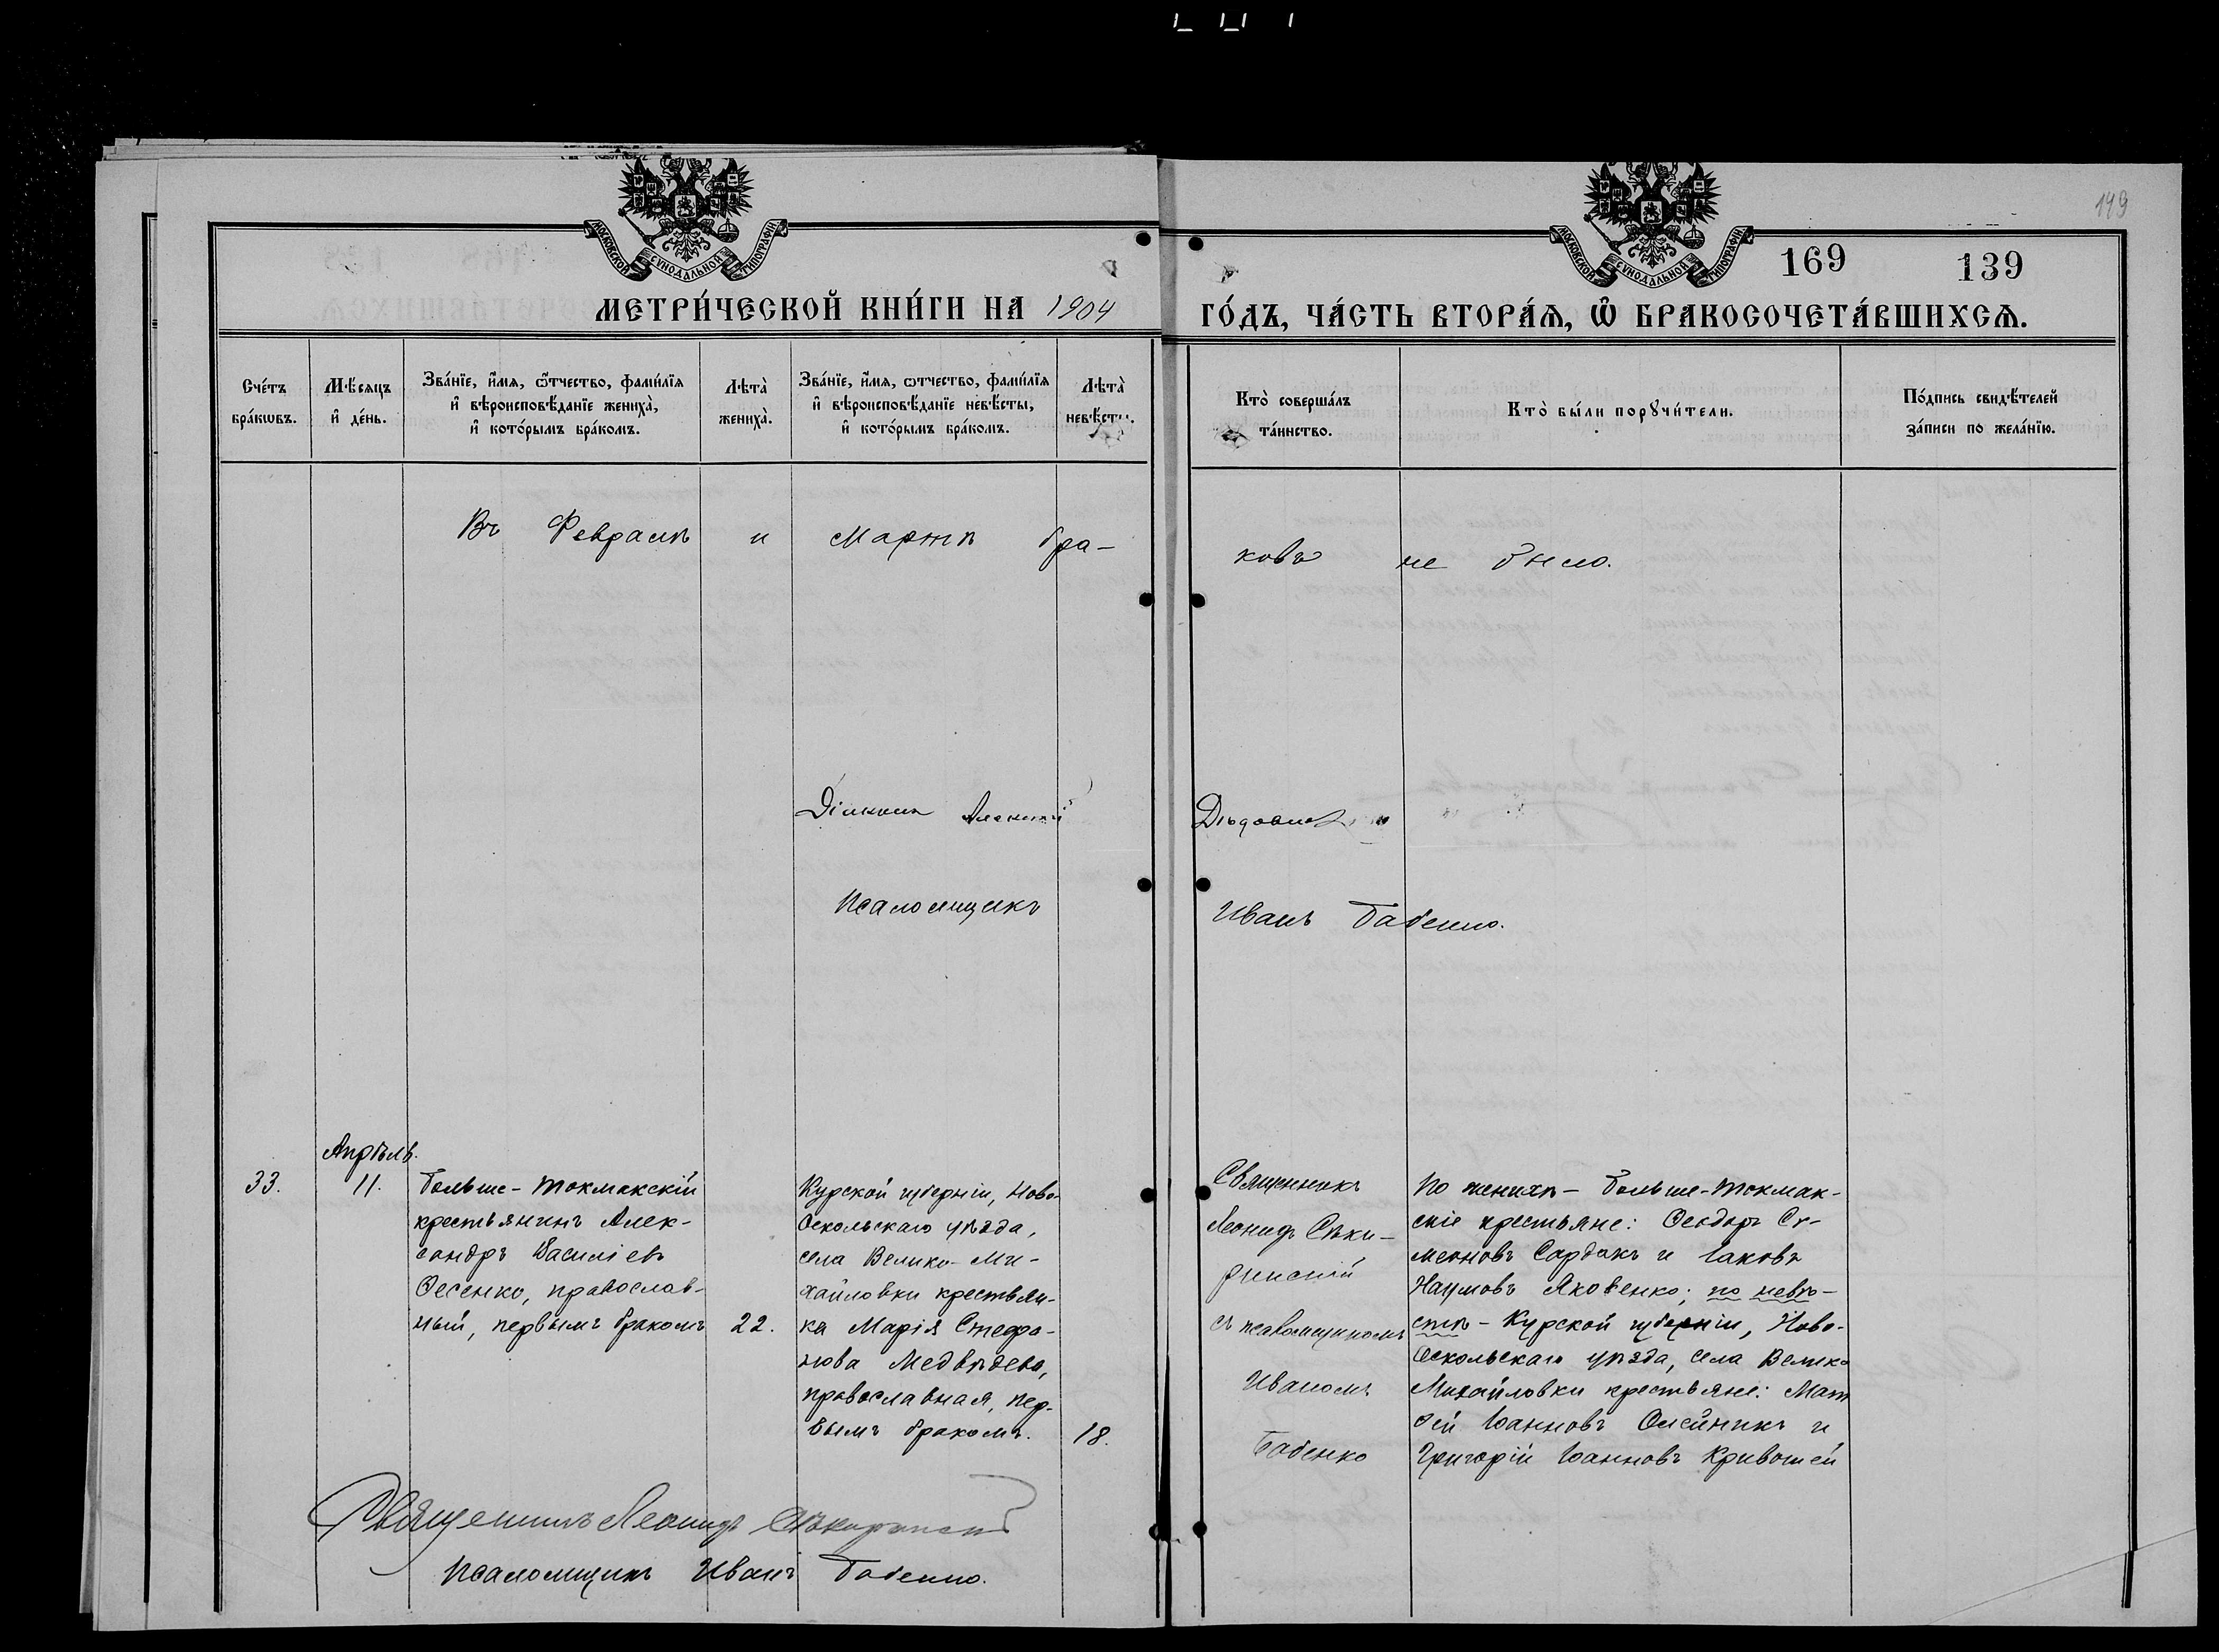 149
МОСКОВСКОЙ СѴНОДАЛЬНОЙ ТИПОГРАФІИ.
МОСКОВСКОЙ СѴНОДАЛЬНОЙ ТИПОГРАФІИ.
169 139
МЕТРИ́ЧЕСКОЙ КНИ́ГИ НА 1904 ГО́ДЪ, ЧА́СТЬ ВТОРА́Ѧ, Ѽ БРАКОСОЧЕТА́ВШИХСѦ.
Сче́тъ
бра́кѡвъ.
Мѣ́сяцъ
и҆ де́нь.
Зва́нїе, и҆́мя, ѻ҆́тчество, фами́лїя
и҆ вѣроисповѣ́данїе жениха̀,
и҆ кото́рымъ бра́комъ.
Лѣта̀
жениха̀.
Зва́нїе, и҆́мя, ѻтчество, фами́лїя
и҆ вѣроисповѣ́данїе невѣ́сты,
и҆ кото́рымъ бра́комъ.
Лѣта̀
невѣ́сты.
Кто̀ соверша́лъ
та́инство.
Кто̀ бы́ли порꙋчи́тели.
По́дпись свидѣ́телей
за́писи по жела́нїю.
Въ Февралѣ и Мартѣ бра-
ковъ не было.
Діаконъ Алексій
Псаломщикъ Иванъ Бабенко.
Апрѣль.
33. 11.
Больше-Токмакскій
крестьянинъ Алек-
сандръ Василіевъ
Ѳесенко, православ-
ный, первымъ бракомъ 22.
Курской губерніи, Ново-
Оскольскаго уѣзда,
села Велико-Ми-
хайловки крестьян-
ка Марія Стефа-
нова Медвѣдева,
православная, пер-
вымъ бракомъ. 18.
Священникъ
Леонидъ Сѣки-
ринскій
съ псаломщикомъ
Иваномъ
Бабенко
По женихѣ - Больше-Токмак-
скіе крестьяне: Ѳеодоръ Си-
меоновъ Сардакъ и Іаковъ
Наумовъ Яковенко; по невѣ-
стѣ - Курской губерніи, Ново-
Оскольскаго уѣзда, села Велико
Михайловки крестьяне: Мат
ѳей Іоанновъ Олейникъ и
Григорій Іоанновъ Кривошей
Священникъ Леонидъ Сѣкиринскій
Псаломщикъ Иванъ Бабенко.